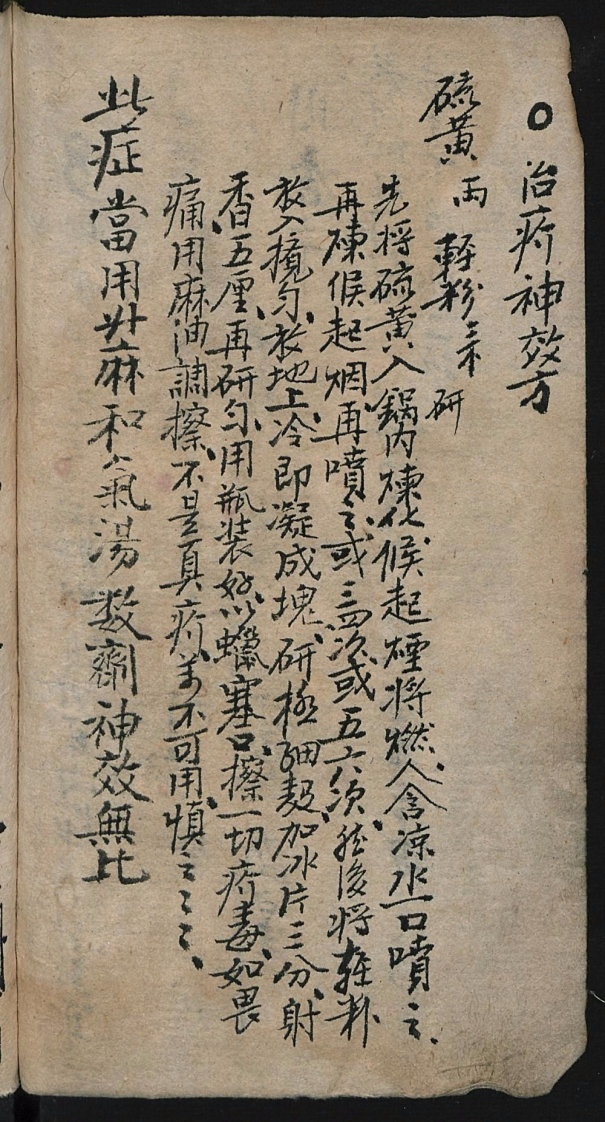 ○治疥神效方
硫黃 両 輕粉 三不 研
先将硫黃入鍋内煉化候起煙将燃人含凉水一口噴之、
再煉候起烟再噴之、或三四次或五六次、然後将輕粉
放入攪匀、放地上冷即凝成塊、研極細麪、加冰片三分、射
香五厘、再研匀、用瓶装好、以蠟塞口、擦一切疥毒、如畏
痛用麻油調擦、不是真疥萬不可用、慎之之之、
此症當用升麻和氣湯数齋神效無比